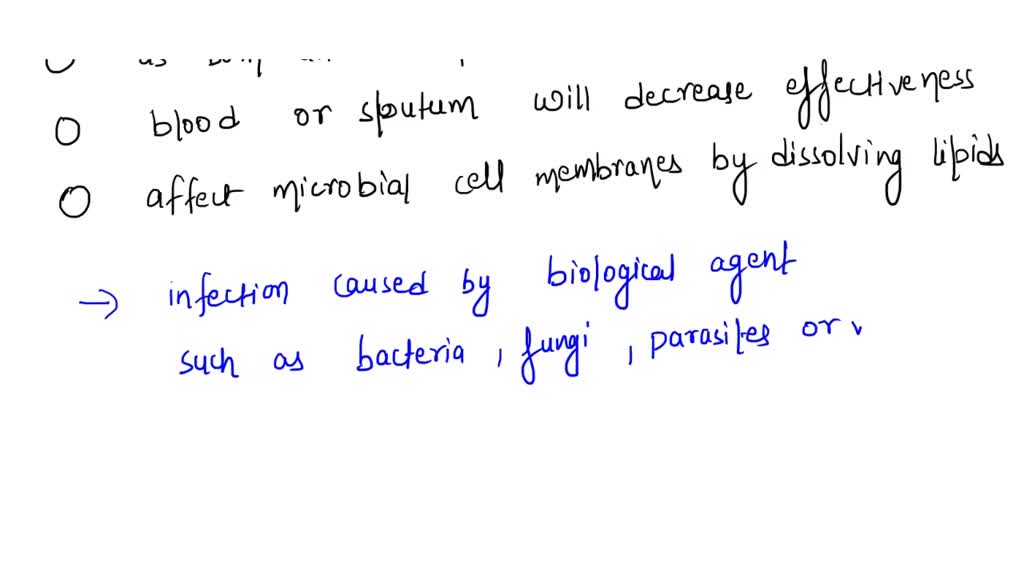 blood or sputum will decrease effectiveness
affect microbial cell membranes by dissolving lipids
→ infection caused by biological agent
such as bacteria, fungi, parasites or